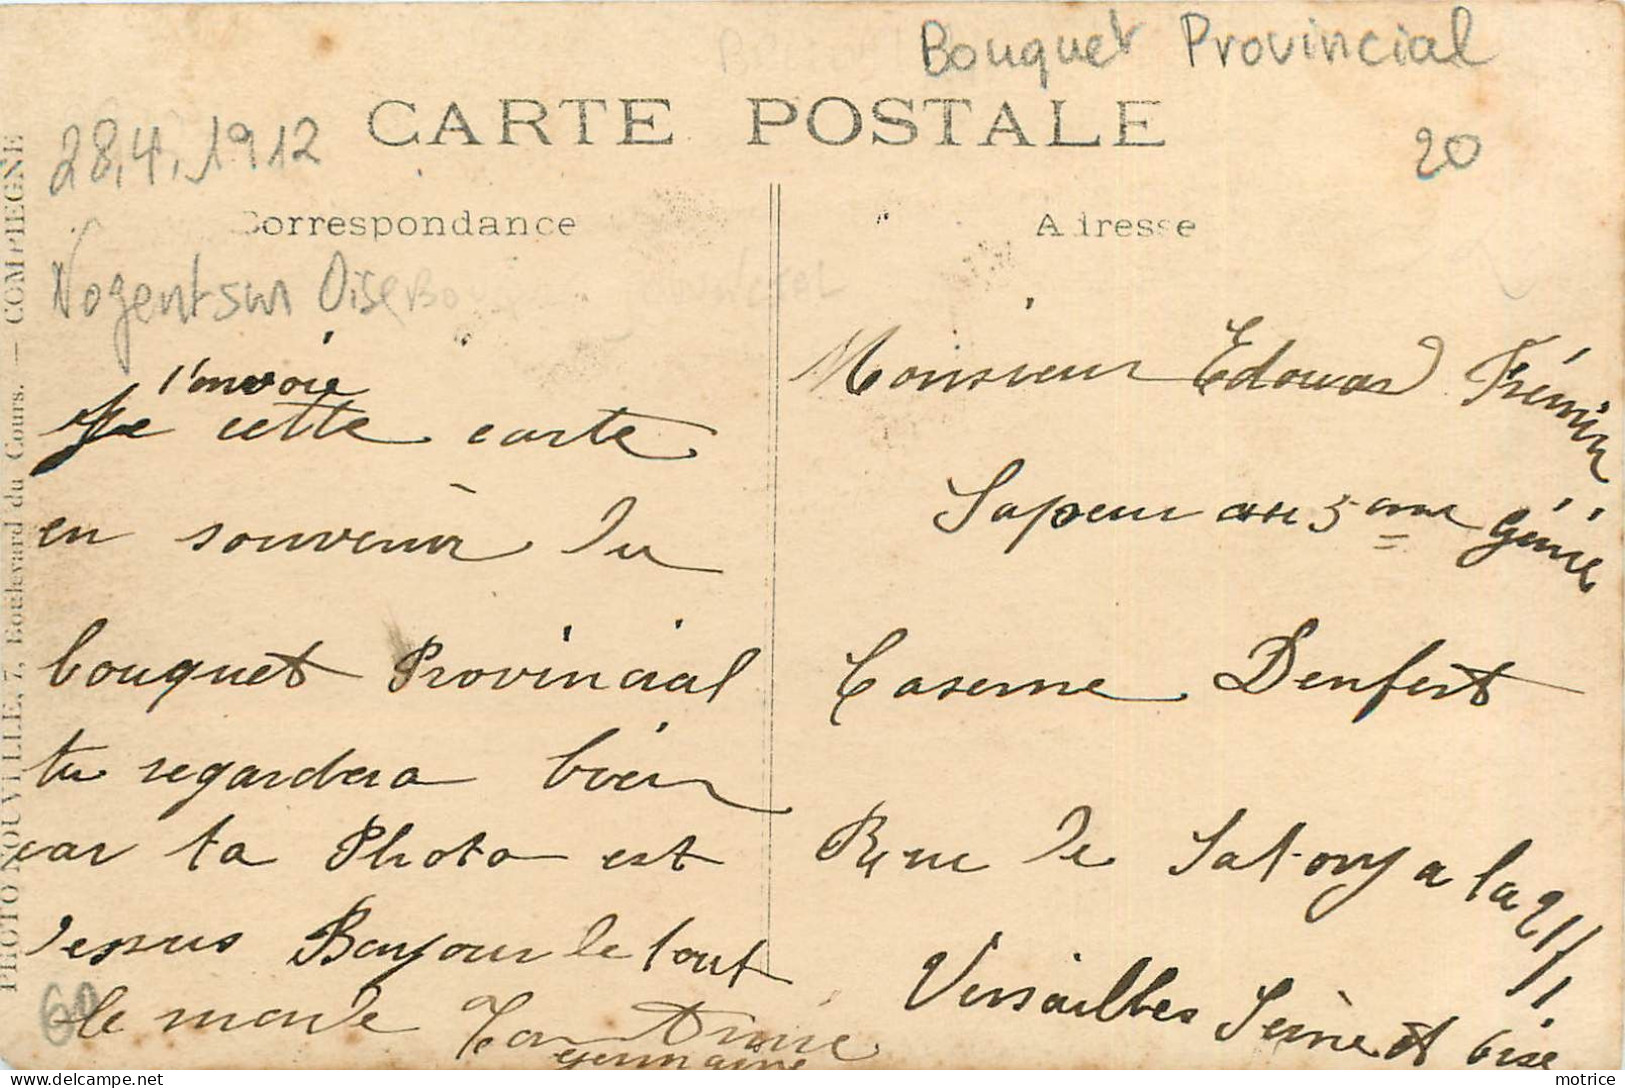 Bouquet Provincial
20
CARTE POSTALE
28.4.1912
Correspondance
Adresse
Nogent sur Oise
PHOTO NOUVILLE, 7, Boulevard du Cours. — COMPIEGNE
t'envoie
Je cette carte
en souvenir du
bouquet Provincial
tu regardera bien
car ta Photo est
dessus Bonjour de tout
le monde Ton Amie
germaine
60
Monsieur Edouard Frémin
Sapeur au 5 eme Génie
Caserne Denfert
Rue de Satory a la 21/1
Versailles Seine et Oise
motrice